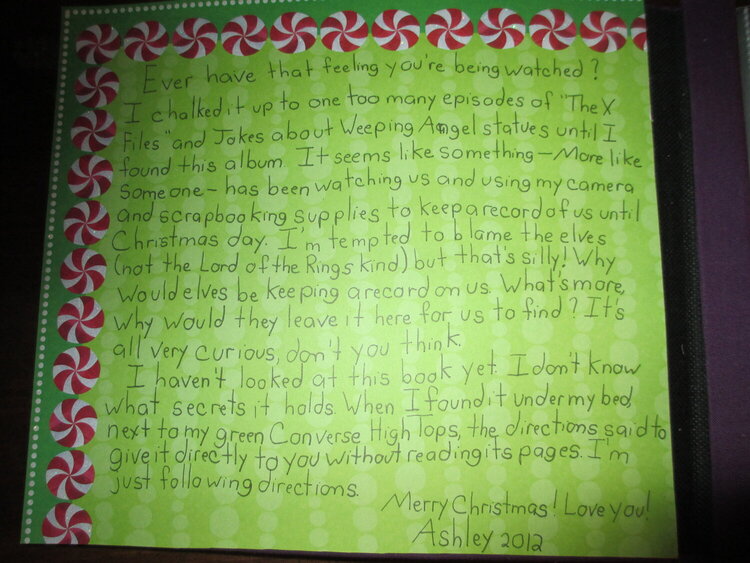 Ever have that feeling you're being watched?
I chalked it up to one too many episodes of "The X
Files" and Jokes about Weeping Angel statues until I
found this album. It seems like something - More like
someone - has been watching us and using my camera
and scrapbooking supplies to keep a record of us until
Christmas day. I'm tempted to blame the elves
(not the Lord of the Rings kind) but that's silly! Why
would elves be keeping a record on us. What's more,
why would they leave it here for us to find? It's
all very curious, don't you think.
I haven't looked at this book yet. I don't know
what secrets it holds. When I found it under my bed,
next to my green Converse High Tops, the directions said to
give it directly to you without reading its pages. I'm
just following directions.
Merry Christmas! Love you!
Ashley 2012